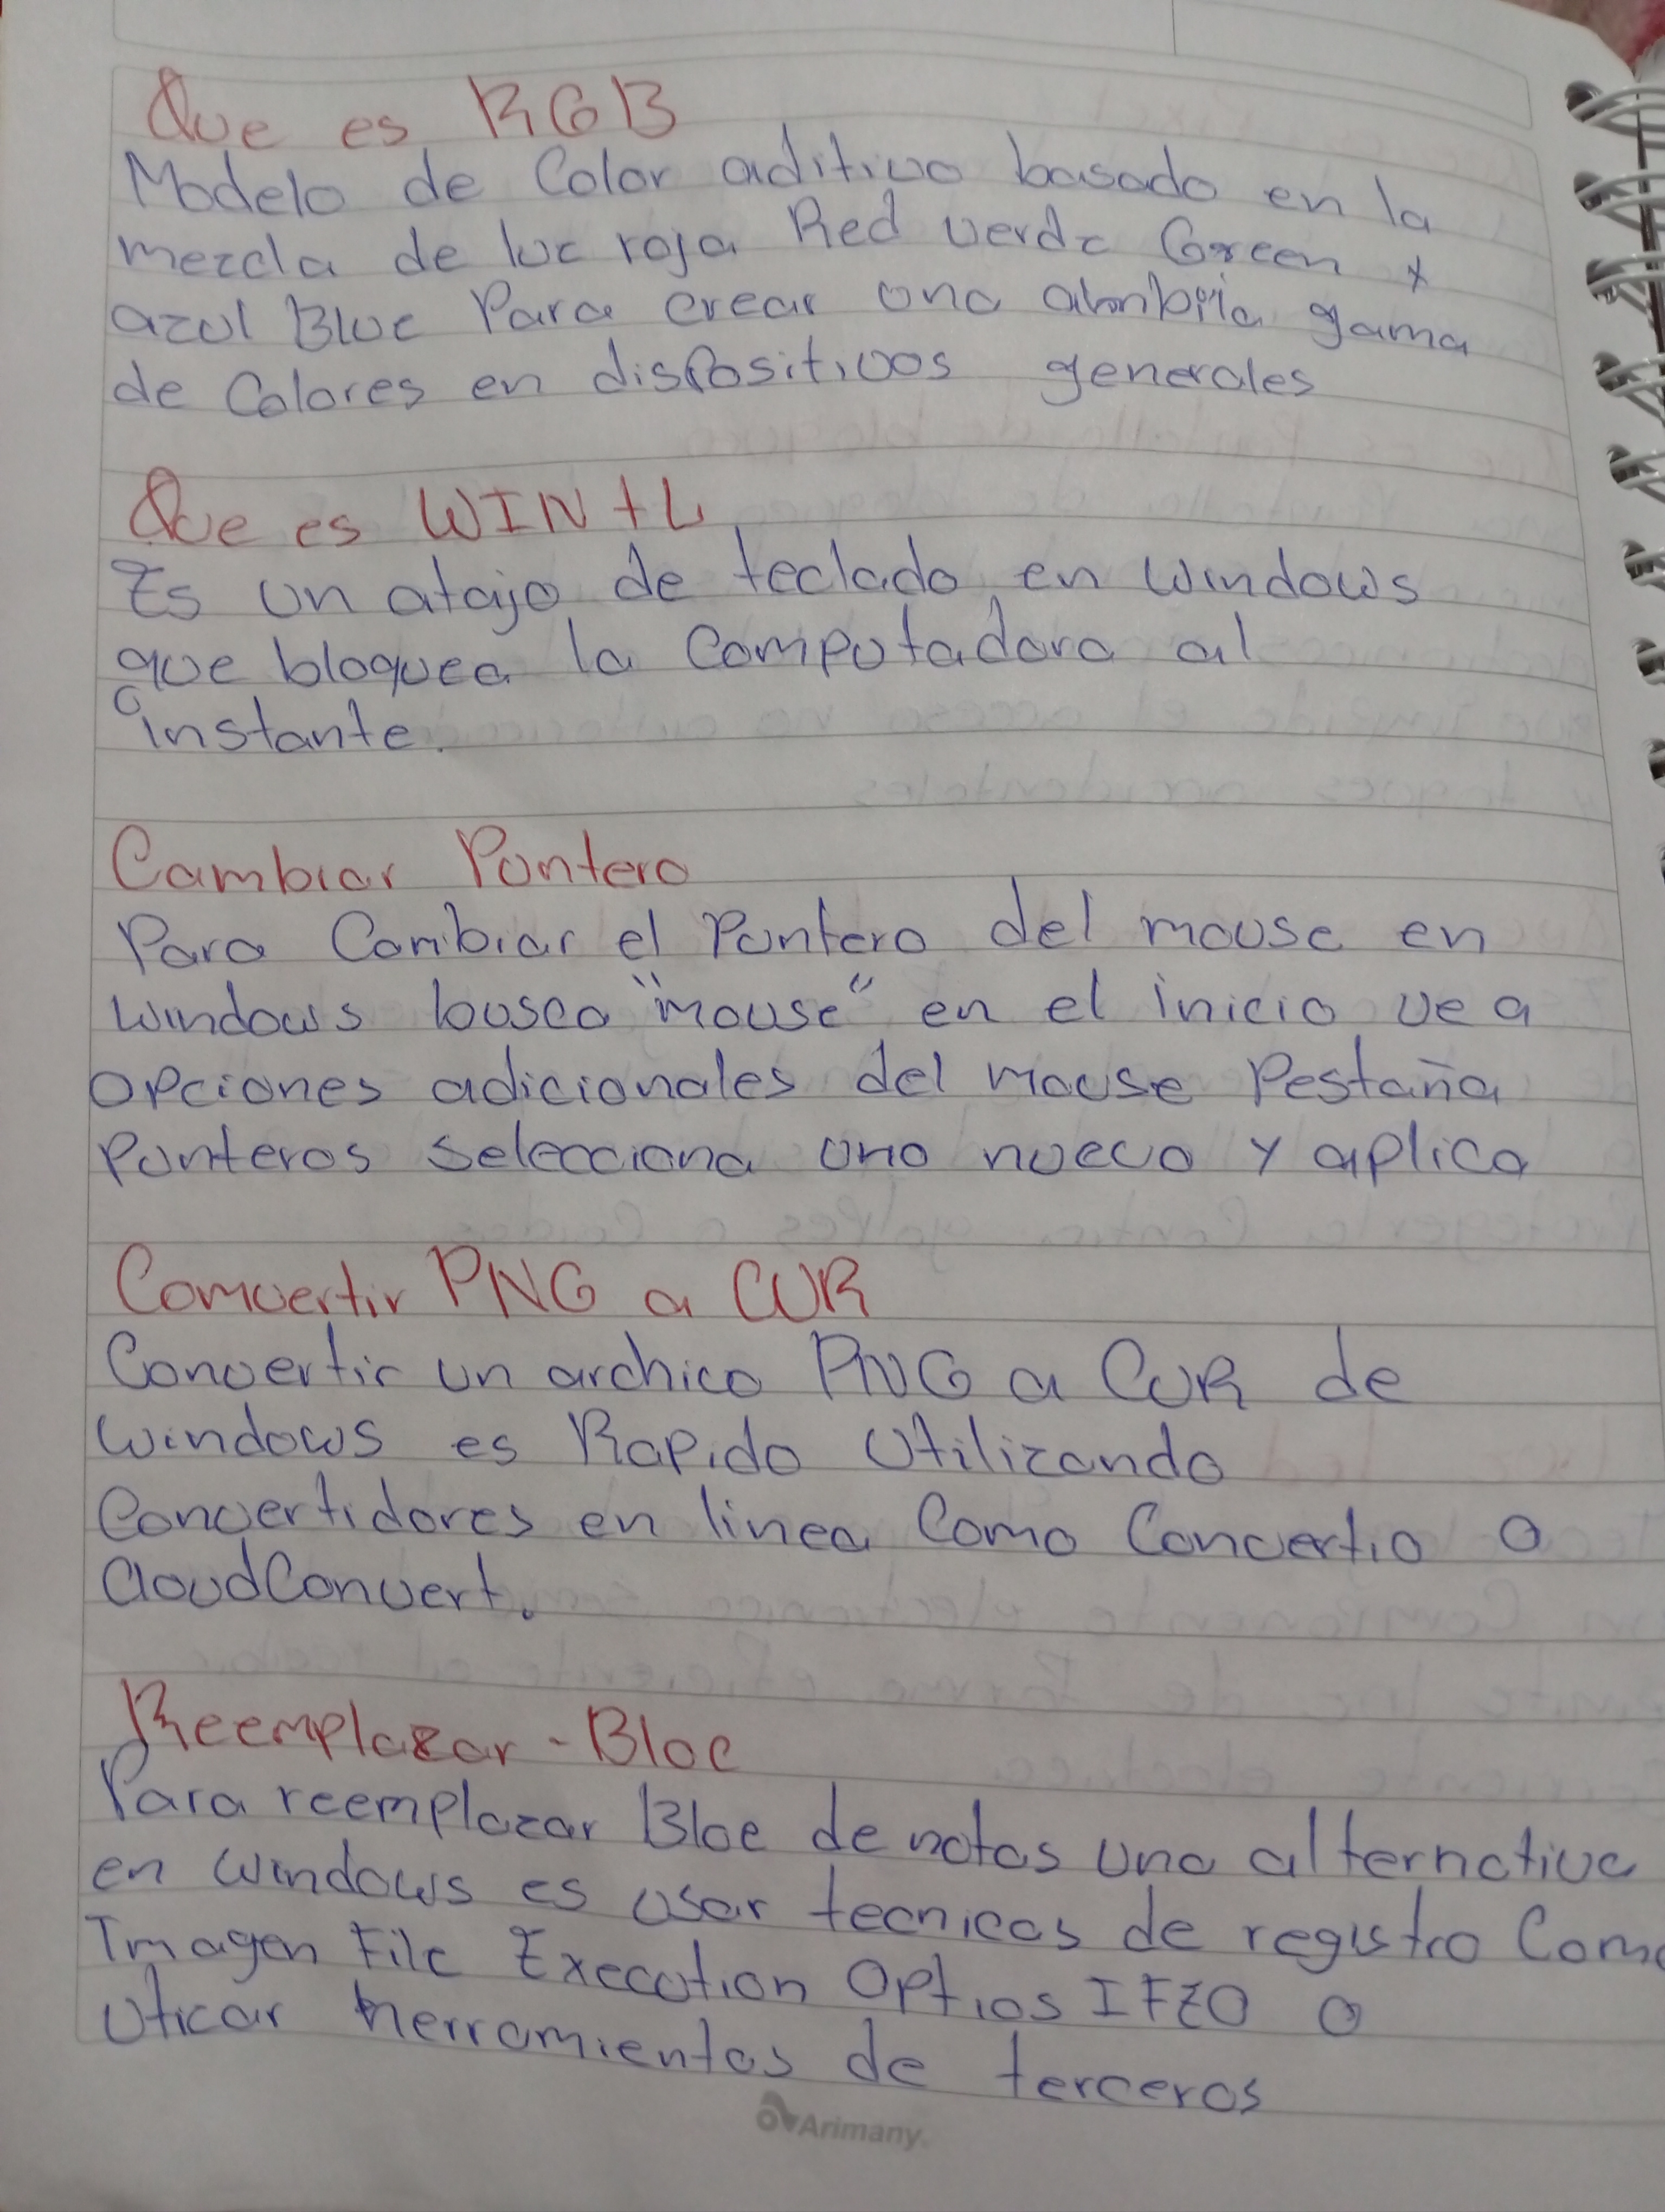 Que es RGB
Modelo de Color aditivo basado en la
mezcla de luz roja Red verde Green y
azul Blue Para crear una gama
de Colores en dispositivos generales
Que es WIN + L
Es un atajo de teclado en Windows
que bloquea la Computadora al
instante.
Cambiar Puntero
Para Cambiar el Puntero del mouse en
Windows busca "mouse" en el inicio ve a
opciones adicionales del mouse Pestaña
Punteros selecciona uno nuevo y aplica
Comvertir PNG a CUR
Convertir un archivo PNG a CUR de
windows es Rapido Utilizando
Convertidores en linea Como Convertio o
CloudConvert.
Reemplazar - Bloc
Para reemplazar Bloc de notas una alternativa
en windows es usar tecnicas de registro Como
Imagen File Execution Optios IFEO o
Uticar herramientas de terceros
Arimany